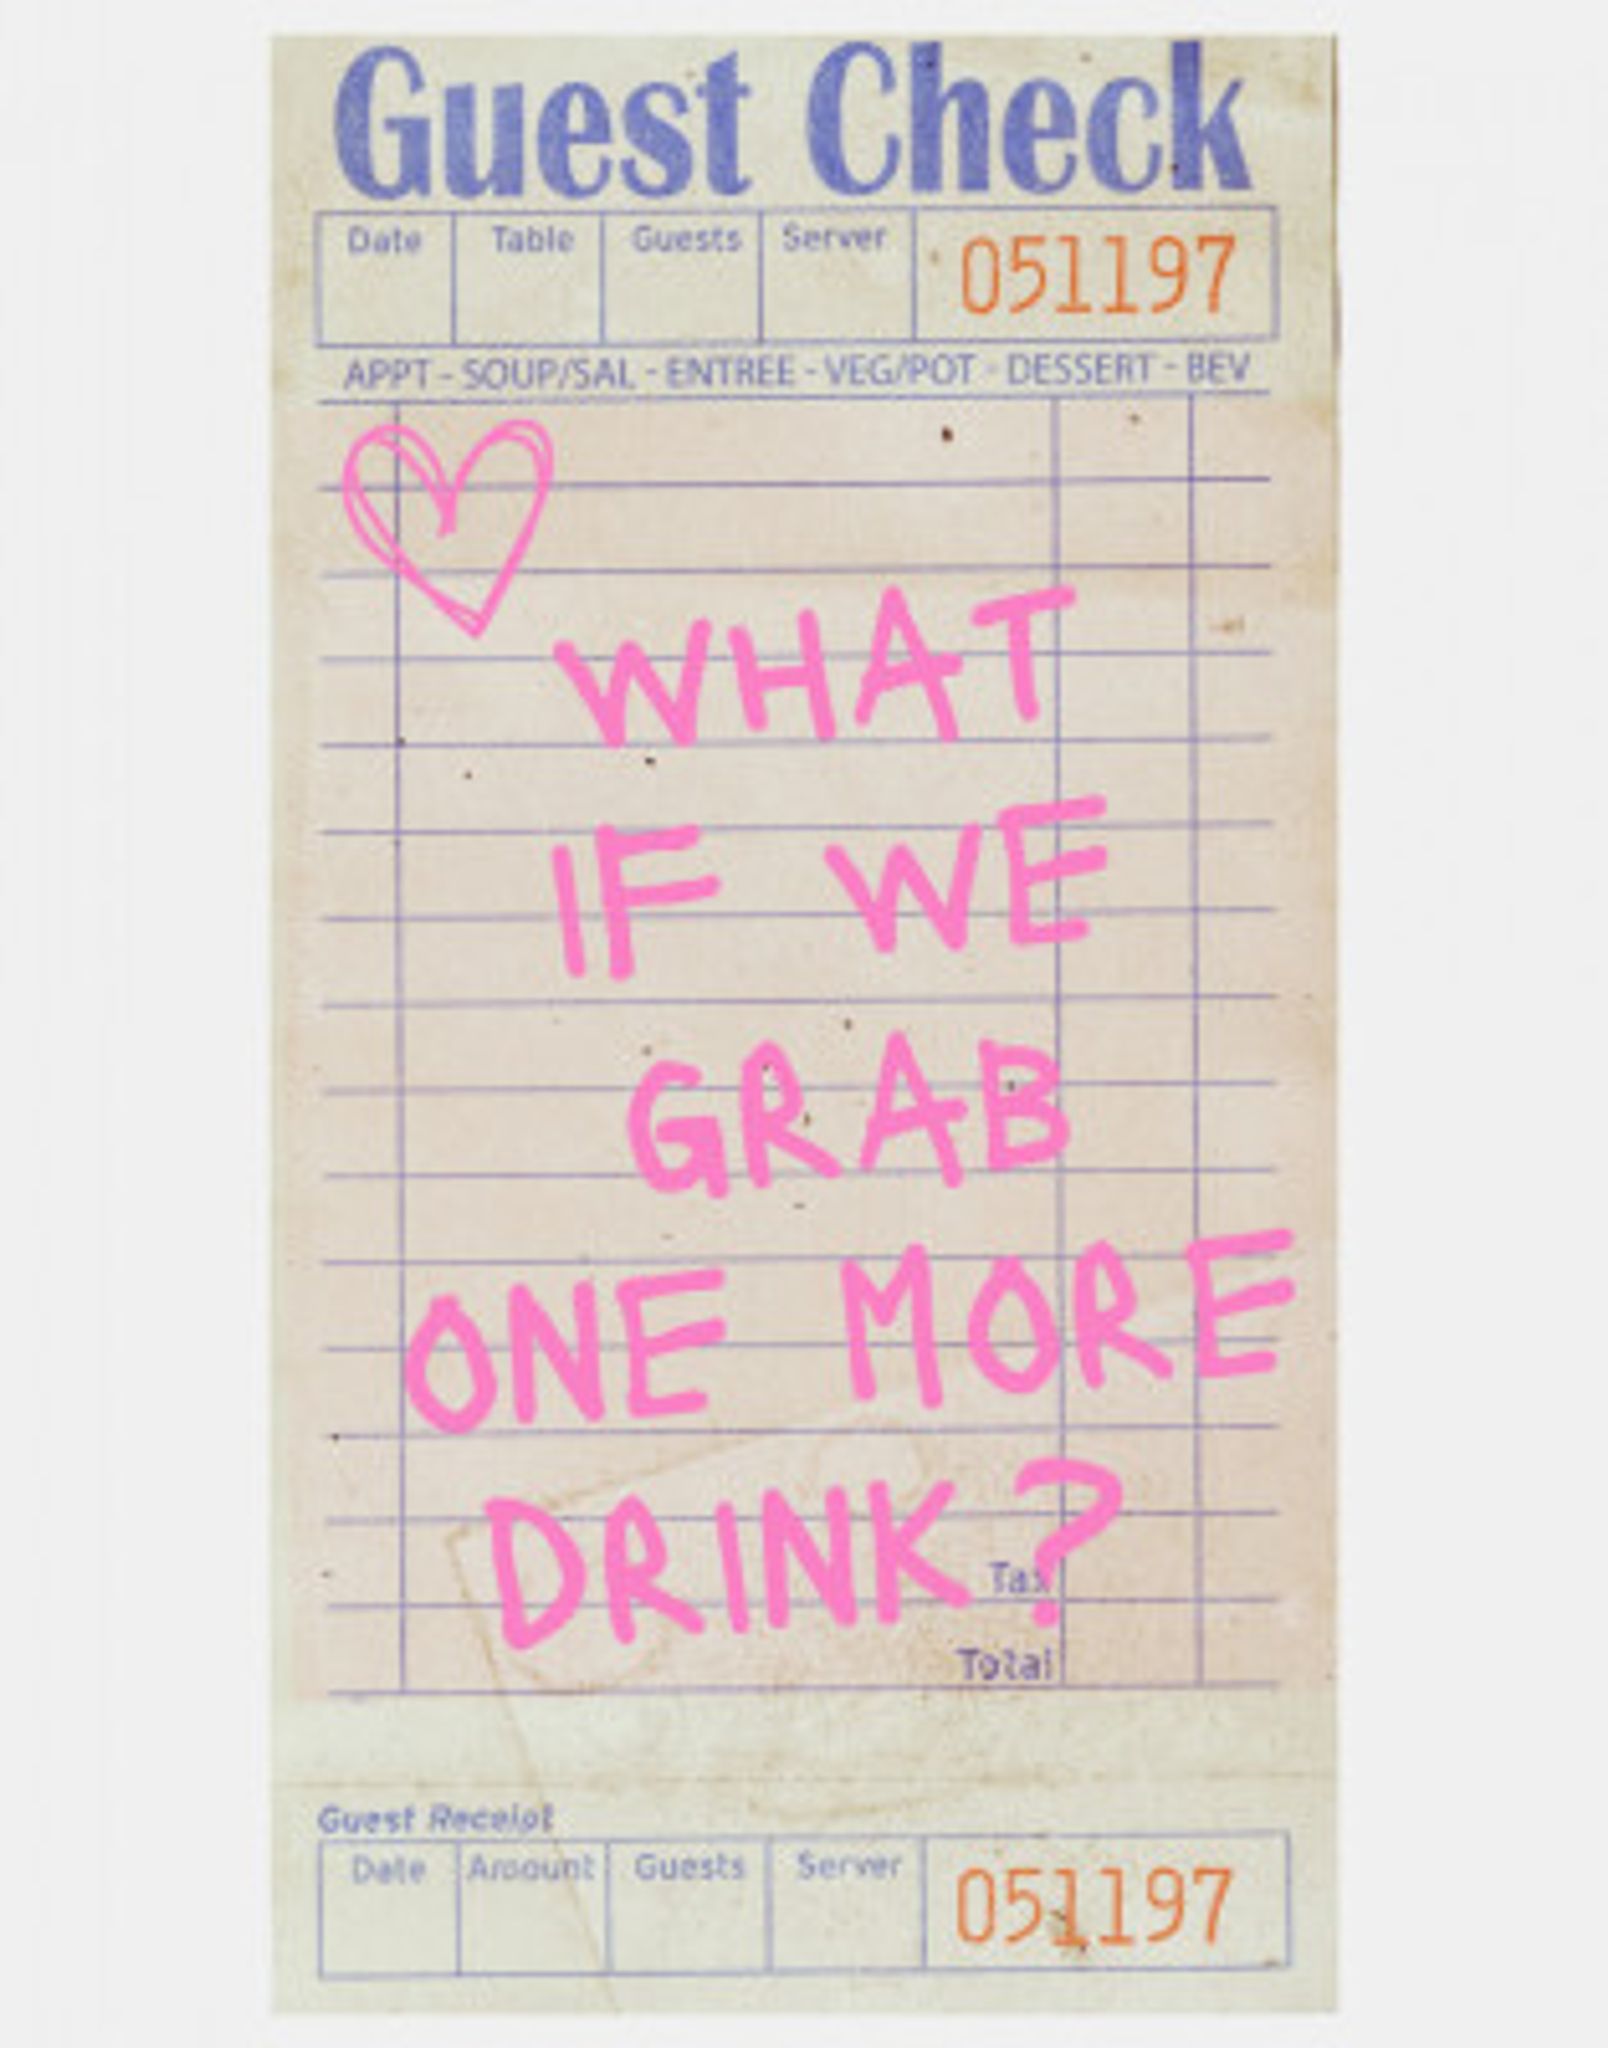 Guest Check
Date Table Guests Server 051197
APPT - SOUP/SAL - ENTREE - VEG/POT - DESSERT - BEV
WHAT
IF WE
GRAB
ONE MORE
DRINK?
Tax
Total
Guest Receipt
Date Amount Guests Server 051197